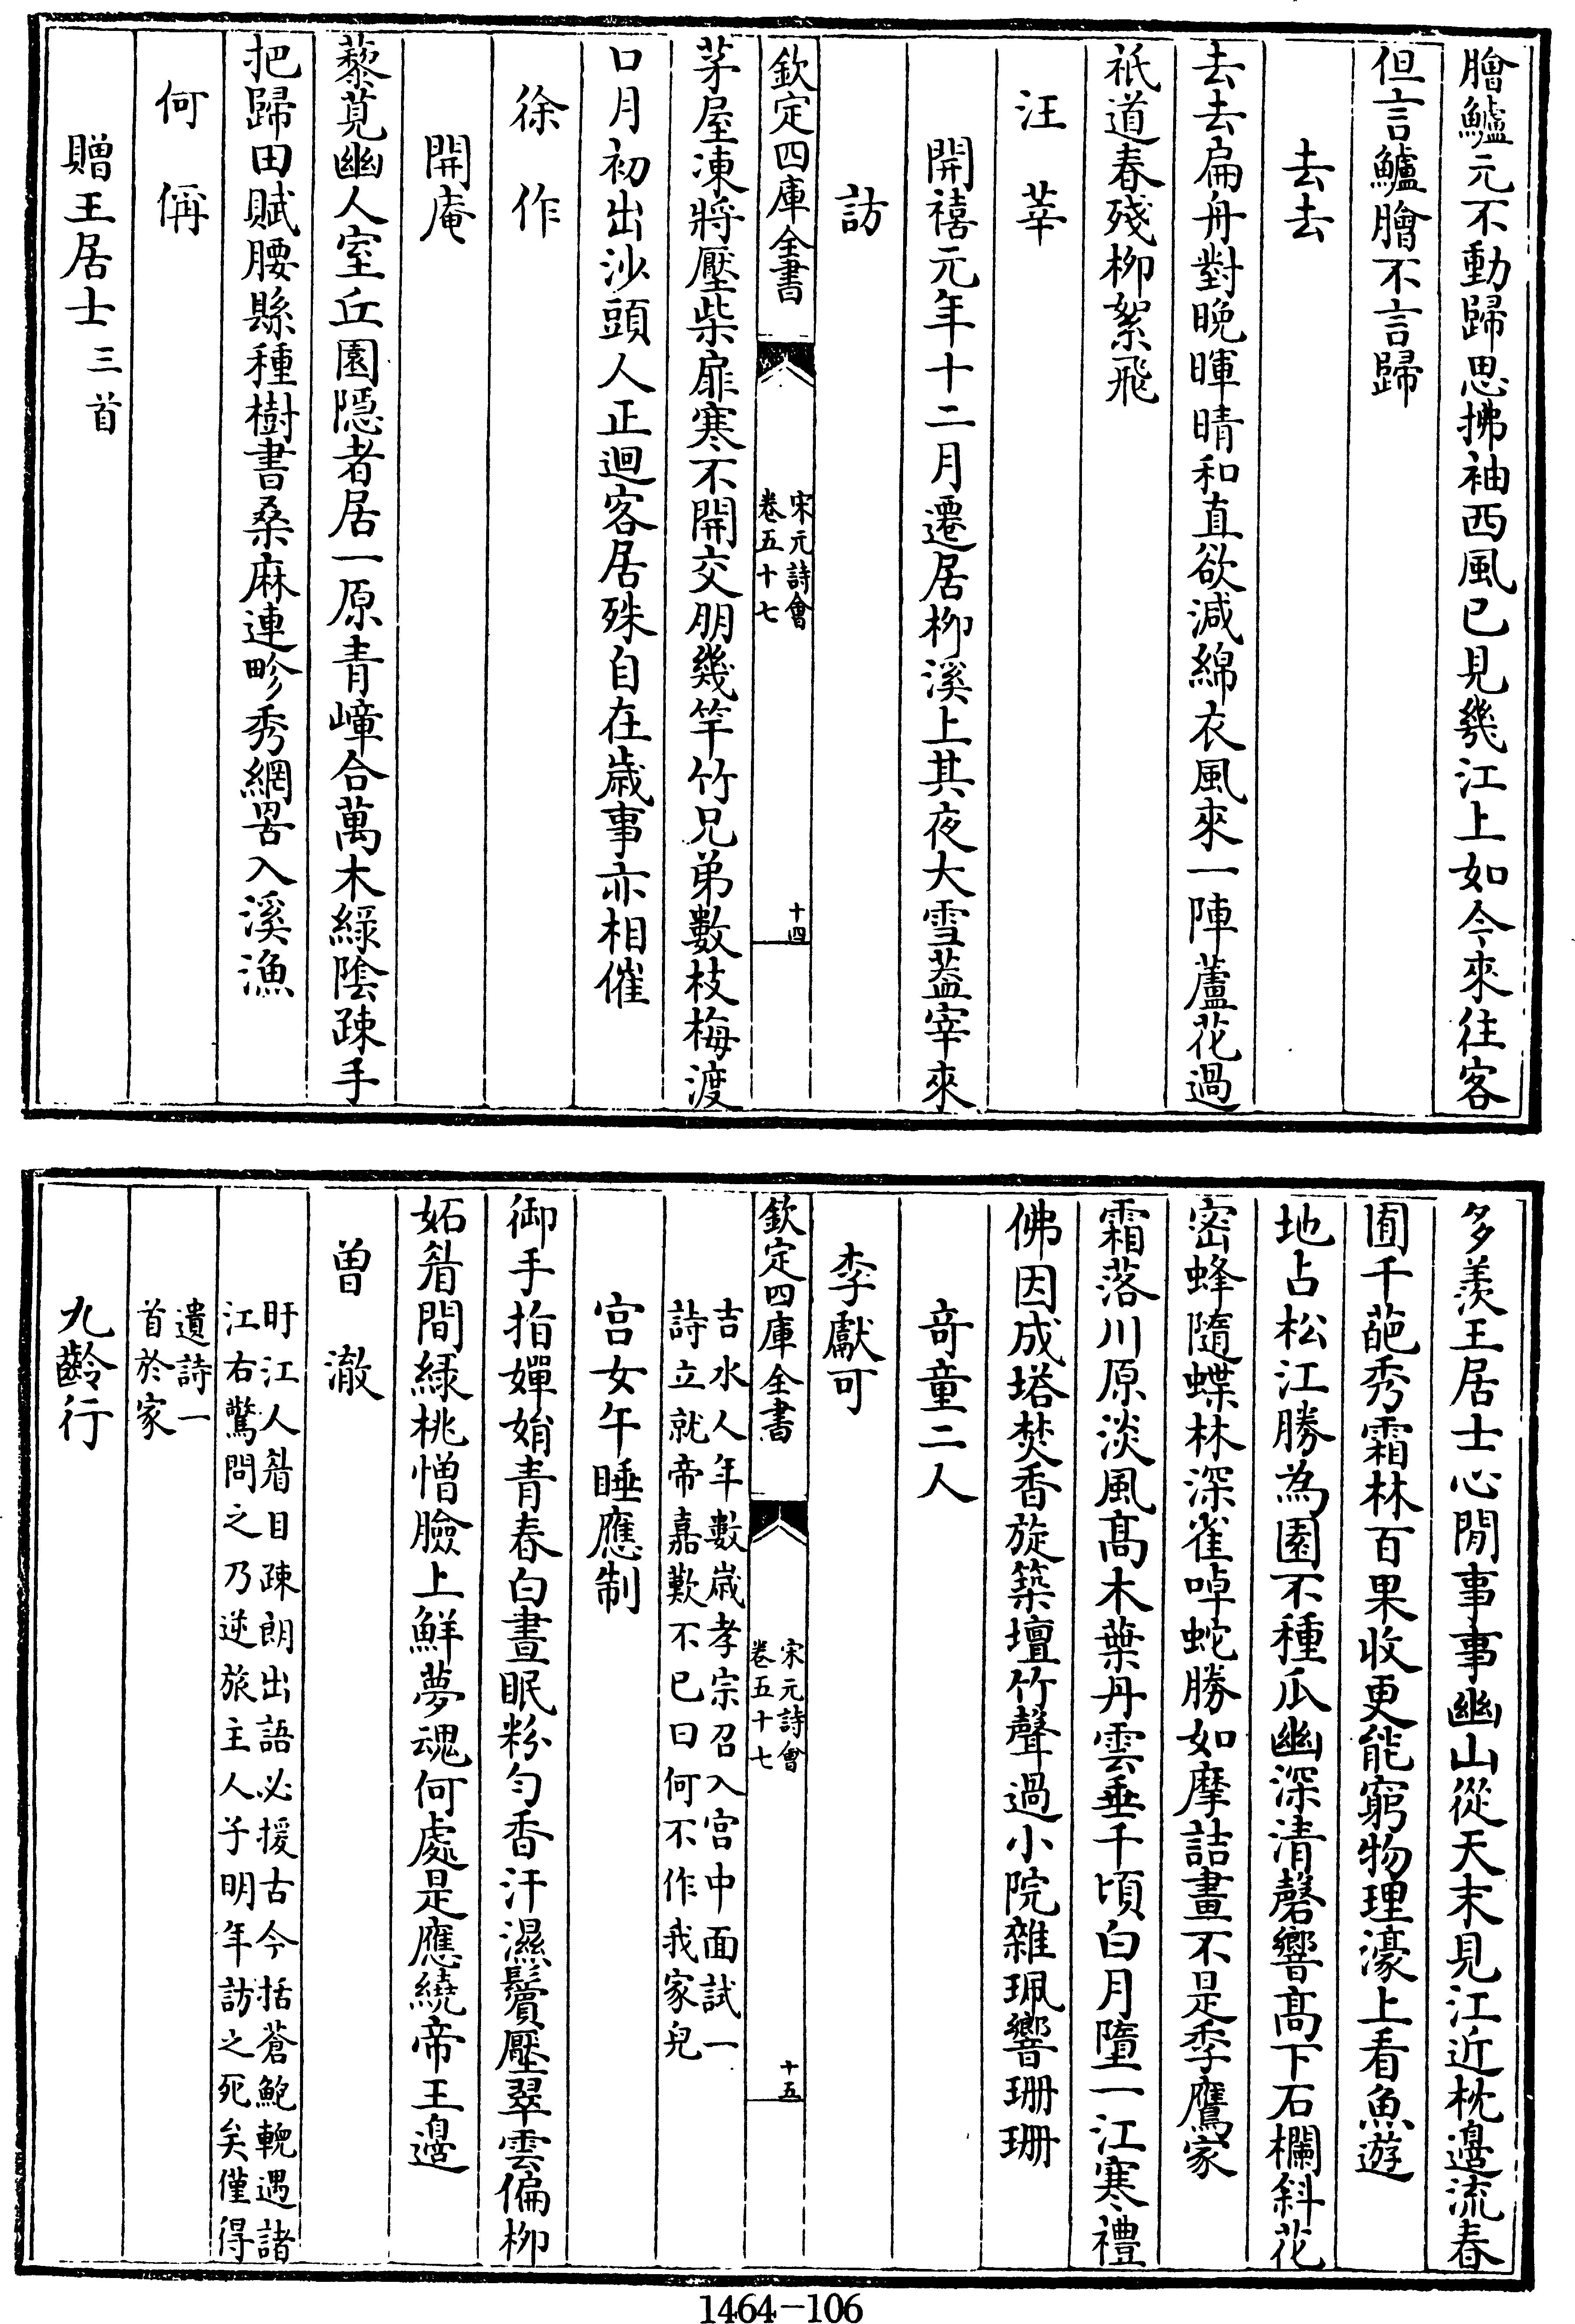 膾鱸元不動歸思拂袖西風已見幾江上如今來往客
但言鱸膾不言歸
去去
去去扁舟對晩暉晴和直欲減綿衣風來一陣蘆花過
祇道春殘柳絮飛
汪莘
開禧元年十二月遷居柳溪上其夜大雪葢宰來
訪
欽定四庫全書
宋元詩會
卷五十七
十四
茅屋凍將壓柴扉寒不開交朋幾竿竹兄弟數枝梅渡
口月初出沙頭人正迴客居殊自在歲事亦相催
徐作
開庵
藜莧幽人室丘園隠者居一原青嶂合萬木緑陰踈手
把歸田賦腰縣種樹書桑麻連畛秀網罟入溪漁
何偁
贈王居士三首
多羨王居士心閒事事幽山從天末見江近枕邉流春
囿千葩秀霜林百果收更能窮物理濠上看魚遊
地占松江勝為園不種瓜幽深清磬響髙下石欄斜花
密蜂隨蝶林深雀啅蛇勝如摩詰畫不是季鷹家
霜落川原淡風髙木葉丹雲垂千頃白月墮一江寒禮
佛因成塔焚香旋築壇竹聲過小院雜珮響珊珊
竒童二人
李獻可
欽定四庫全書
宋元詩會
卷五十七
十五
吉水人年數歲孝宗召入宮中面試一
詩立就帝嘉歎不已曰何不作我家兒
宫女午睡應制
御手指嬋娟青春白晝眠粉勻香汗濕鬢壓翠雲偏柳
妬眉間緑桃憎臉上鮮夢魂何處是應繞帝王邉
曽澈
盱江人眉目踈朗出語必援古今括蒼鮑輗遇諸
江右驚問之乃逆旅主人子明年訪之死矣僅得
遺詩一
首於家
九齡行
1464-106